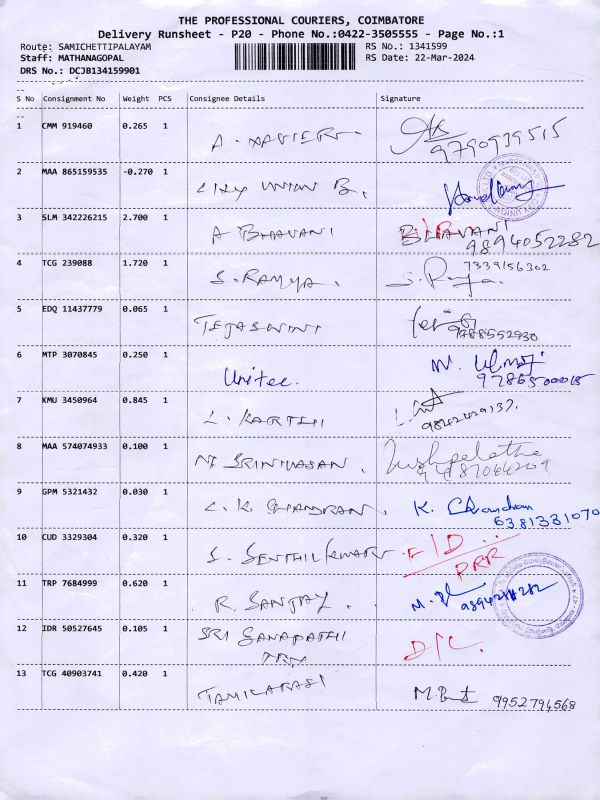 THE PROFESSIONAL COURIERS, COIMBATORE
Delivery Runsheet - P20 - Phone No.:0422-3505555 - Page No.:1
Route: SAMICHETTIPALAYAM RS No.: 1341599
Staff: MATHANAGOPAL RS Date: 22-Mar-2024
DRS No.: DCJB134159901
S No Consignment No Weight PCS Consignee Details Signature
1 CMM 919460 0.265 1 A. XAVIER
9790939515
2 MAA 865159535 -0.270 1 CITY UNION B.
3 SLM 342226215 2.700 1 A BHAVANI BHAVANI
9894052282
4 TCG 239088 1.720 1 S. RAMYA. 7339156302
S. Ramya.
5 EDQ 11437779 0.065 1 TEJASWINI
9788552930
6 MTP 3070845 0.250 1 Unitec.
9786500015
7 KMU 3450964 0.845 1 L. KARTHI
9842429137.
8 MAA 574074933 0.100 1 M SRINIVASAN. Pushpalatha
9487064209
9 GPM 5321432 0.030 1 C. K CHANDRAN. K. Chandran
6381331070
10 CUD 3329304 0.320 1 S. SENTHIL KUMAR F/D
PRR
11 TRP 7684999 0.620 1 R. SANJAY.
12 IDR 50527645 0.105 1 SRI GANAPATHI D/L.
TEX
13 TCG 40903741 0.420 1 TAMILARASI 9952794568